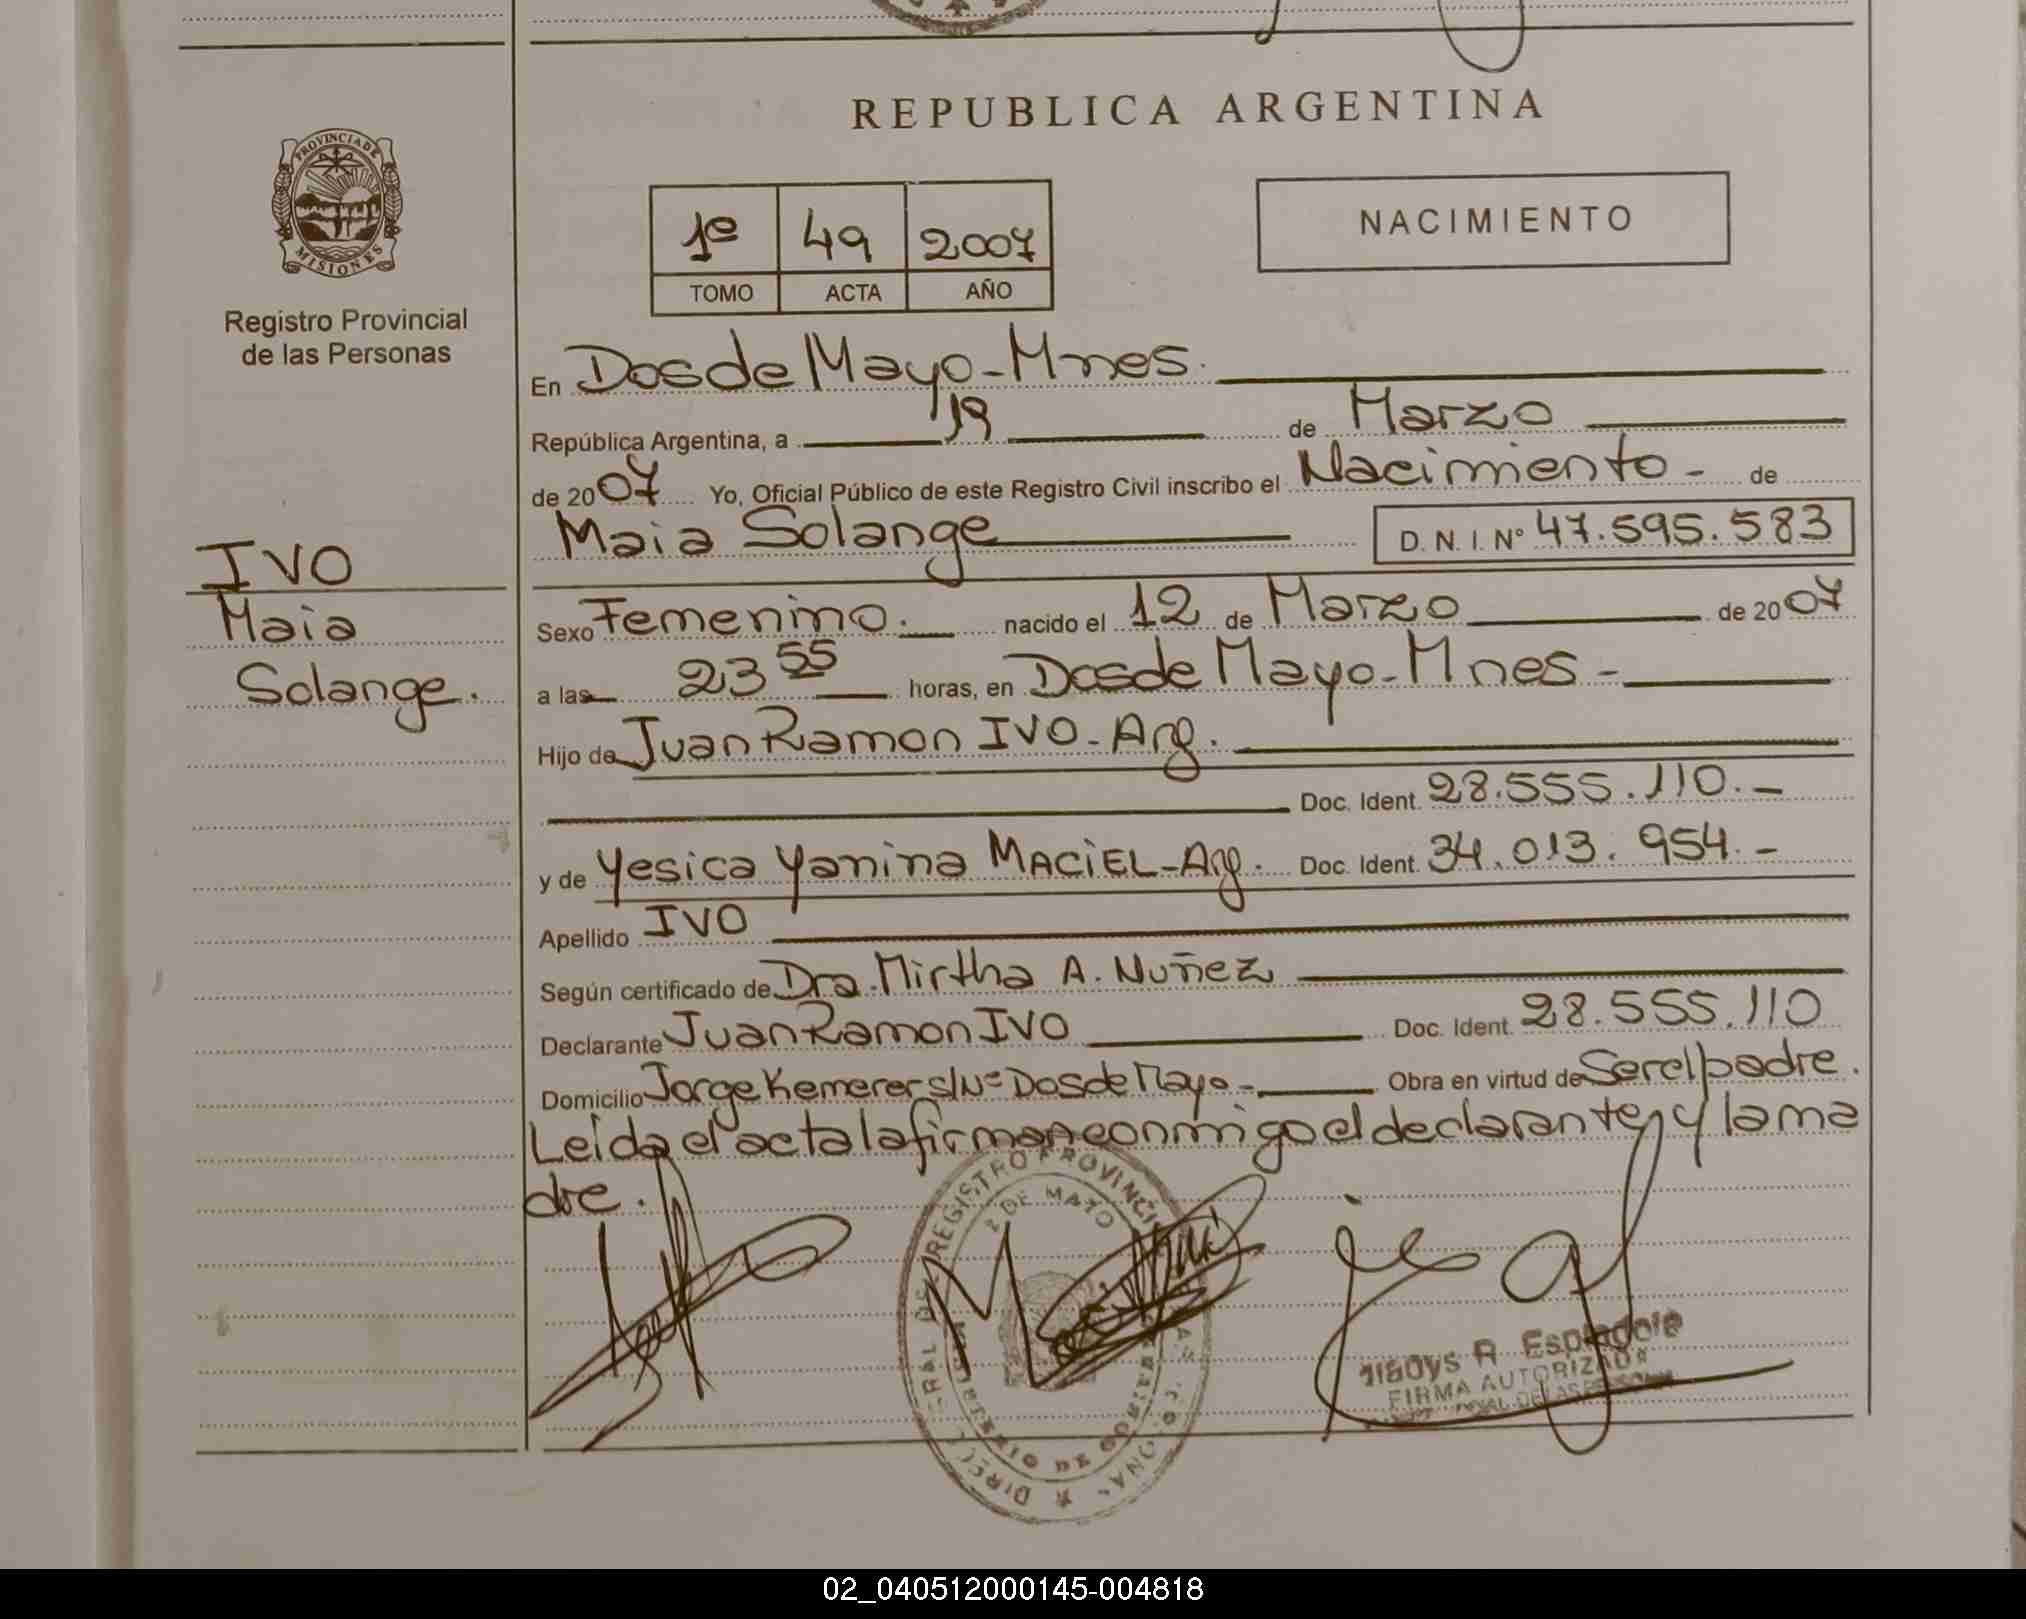 REPUBLICA ARGENTINA
PROVINCIA DE
MISIONES
Registro Provincial
de las Personas
1º 49 2007
TOMO ACTA AÑO
NACIMIENTO
En Dos de Mayo - Mnes.
República Argentina, a 19 de Marzo
de 2007 Yo, Oficial Público de este Registro Civil inscribo el Nacimiento - de
Maia Solange D. N. I. Nº 47.595.583
IVO
Maia
Solange.
Sexo Femenino. nacido el 12 de Marzo de 2007
a las 23 55 horas, en Dos de Mayo - Mnes -
Hijo de Juan Ramon IVO - Arg.
Doc. Ident. 28.555.110. -
y de Yesica Yanina MACIEL - Arg. Doc. Ident. 34.013.954. -
Apellido IVO
Según certificado de Dra. Mirtha A. Nuñez
Declarante Juan Ramon IVO Doc. Ident. 28.555.110
Domicilio Jorge Kemerer s/Nº Dos de Mayo - Obra en virtud de Ser el padre.
Leída el acta la firman conmigo el declarante, y la ma
dre.
REGISTRO PROVINCIAL
2 DE MAYO
Gladys R. Espindola
FIRMA AUTORIZADA
02_040512000145-004818